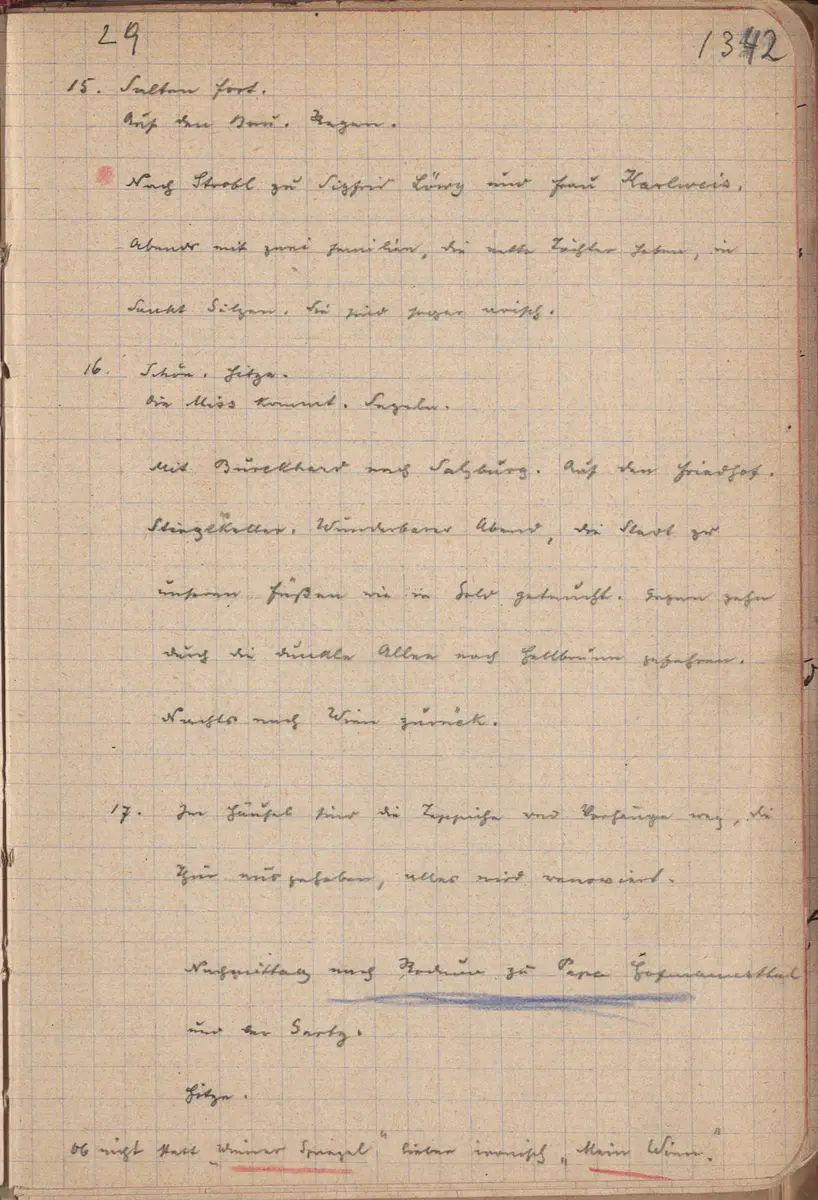 29
1342
15. Salten fort.
Auf den Bau. Regen.
Nach Strobl zu Sigfrid Löwy und Frau Karlweis.
Abends mit zwei Familien, die nette Töchter haben, in
Sankt Gilgen. Sie sind sogar arisch.
16. Schön. Hitze.
Die Miss kommt. Segeln.
Mit Burckhard nach Salzburg. Auf den Friedhof.
Stieglkeller. Wunderbarer Abend, die Stadt zu
unseren Füßen wie in Gold getaucht. Gegen zehn
durch die dunkle Allee nach Hellbrunn gefahren.
Nachts nach Wien zurück.
17. Im Häusel sind die Teppiche und Vorhänge weg, die
Thür ausgehoben, alles wird renoviert.
Nachmittag nach Rodaun zu Papa Hofmannsthal
und der Garty.
Hitze.
Ob nicht statt „Wiener Spiegel“ lieber ironisch „Mein Wien“.